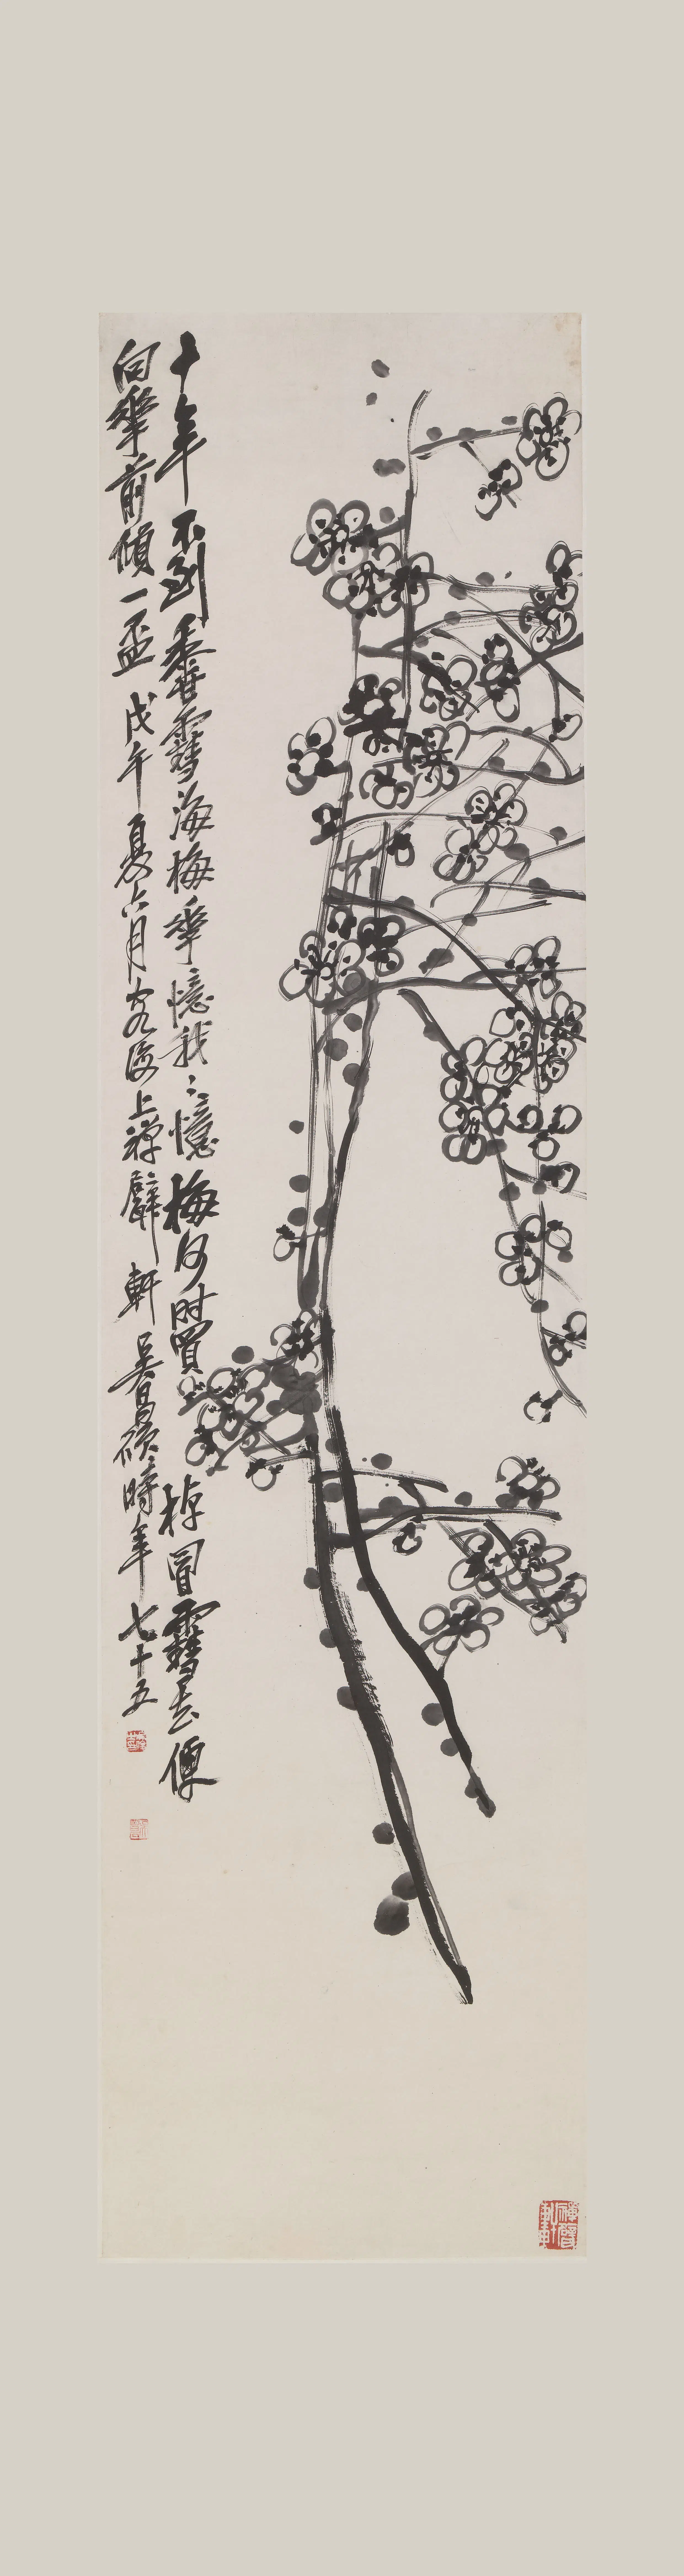 十年不到香雪海梅華憶我〻憶梅何時買棹冒雪去便
向華前傾一盃戊午夏六月客滬上禪甓軒吳昌碩時年七十五
禪甓軒